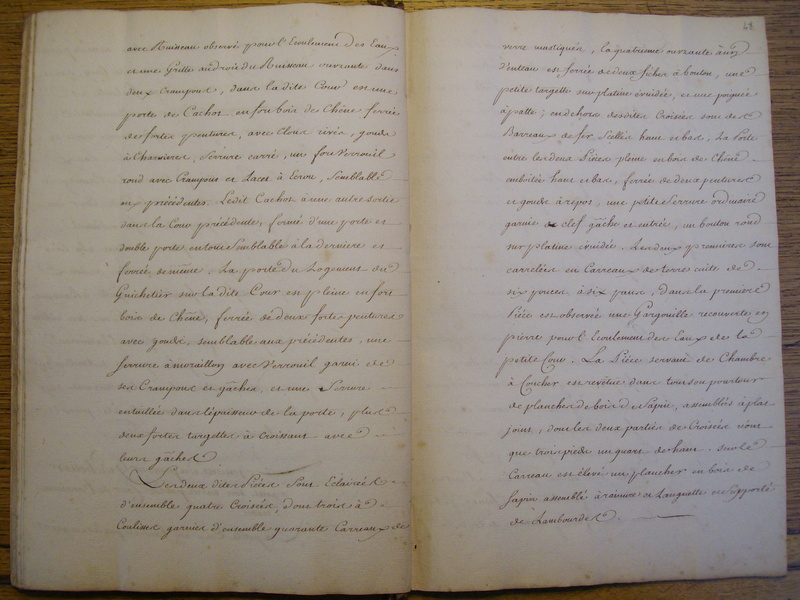 avec Ruisseau observé pour l'Ecoulement des Eaux
et une Grille au droit du Ruisseau ouvrante dans
deux Crampons, dans la dite Cour est une
porte de Cachot en fort bois de Chêne ferrée
de fortes pentures, avec clous rivés, gonds
à Charnieres, serrure carré, un fort verrouil
rond avec Crampons et Lacet à Ecrou, semblable
aux précédentes. Ledit Cachot à une autre sortie
dans la Cour précédente, fermé d'une porte et
double porte en tout semblable à la derniere et
ferrée de même. La porte du Logement du
Guichetier sur la dite Cour est pleine en fort
bois de Chêne, ferrée de deux fortes pentures
avec gonds, semblable aux précédentes, une
serrure à moraillon avec verrouil garni de
ses Crampons et gâches, et une Serrure
entaillée dans l'épaisseur de la porte, plus
deux fortes targettes à Croissant avec
leurs gâches
Les deux dites Pièces sont Eclairées
d'ensemble quatre Croisées, dont trois à
Coulisses garnies d'ensemble quarante Carreaux de
48.
verre mastiqués, la quatrieme ouvrante à un
Venteau est ferrée de deux fiches à bouton, une
petite targette sur platine évuidée, et une poignée
à patte; en dehors desdites Croisées sont des
Barreaux de fer Scellés haut et bas, La Porte
entre les deux Pièces pleine en bois de Chêne
emboitée haut et bas, ferrée de deux pentures
et gonds à repos, une petite serrure ordinaire
garnie de clef gâche et entrée, un bouton rond
sur platine évuidée. Les deux premieres sont
carrelées en Carreaux de terre cuite de
six pouces à six pans, dans la premiere
Pièce est observée une Gargouille recouverte en
pierre pour l'Ecoulement des Eaux de la
petite Cour. La Pièce servant de Chambre
à Coucher est revêtue dans tout son pourtour
de planches de bois de Sapin, assemblés à plat
joint, dont les deux parties de Croisées n'ont
que trois pieds un quart de haut. sur le
Carreau est élevé un plancher en bois de
sapin assemblé à rainure et Languette et supporté
de Lambourdes.